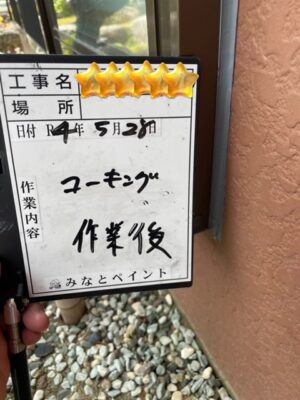 工事名
場所
日付 R4年5月28日
作業内容
コーキング
作業後
みなとペイント